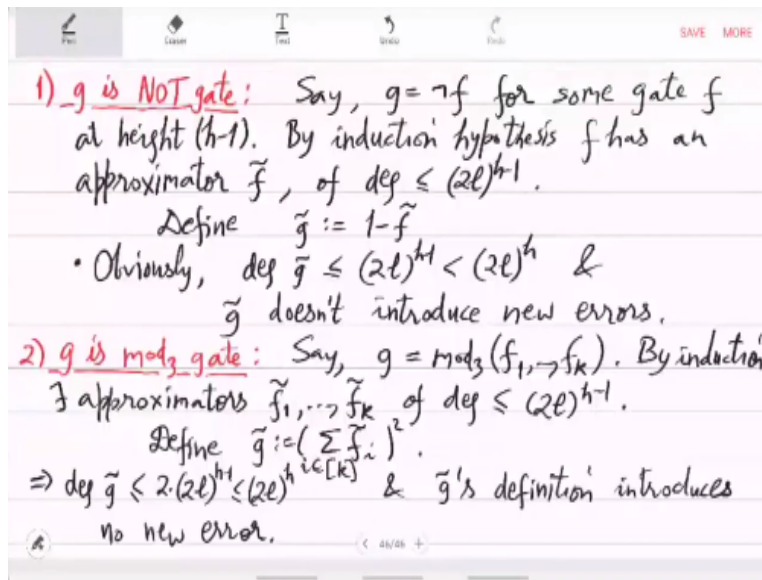 Pen Eraser Text Undo Redo SAVE MORE
1) g is NOT gate: Say, g = ¬f for some gate f
at height (h-1). By induction hypothesis f has an
approximator f̃, of deg ≤ (2ℓ)^{h-1}.
Define g̃ := 1-f̃
• Obviously, deg g̃ ≤ (2ℓ)^{h-1} < (2ℓ)^h &
g̃ doesn't introduce new errors.
2) g is mod₃ gate: Say, g = mod₃(f₁,..,f_k). By induction
∃ approximators f̃₁,...,f̃_k of deg ≤ (2ℓ)^{h-1}.
Define g̃ := (∑_{i∈[k]} f̃_i)².
⇒ deg g̃ ≤ 2·(2ℓ)^{h-1} ≤ (2ℓ)^h & g̃'s definition introduces
no new error.
< 46/46 +